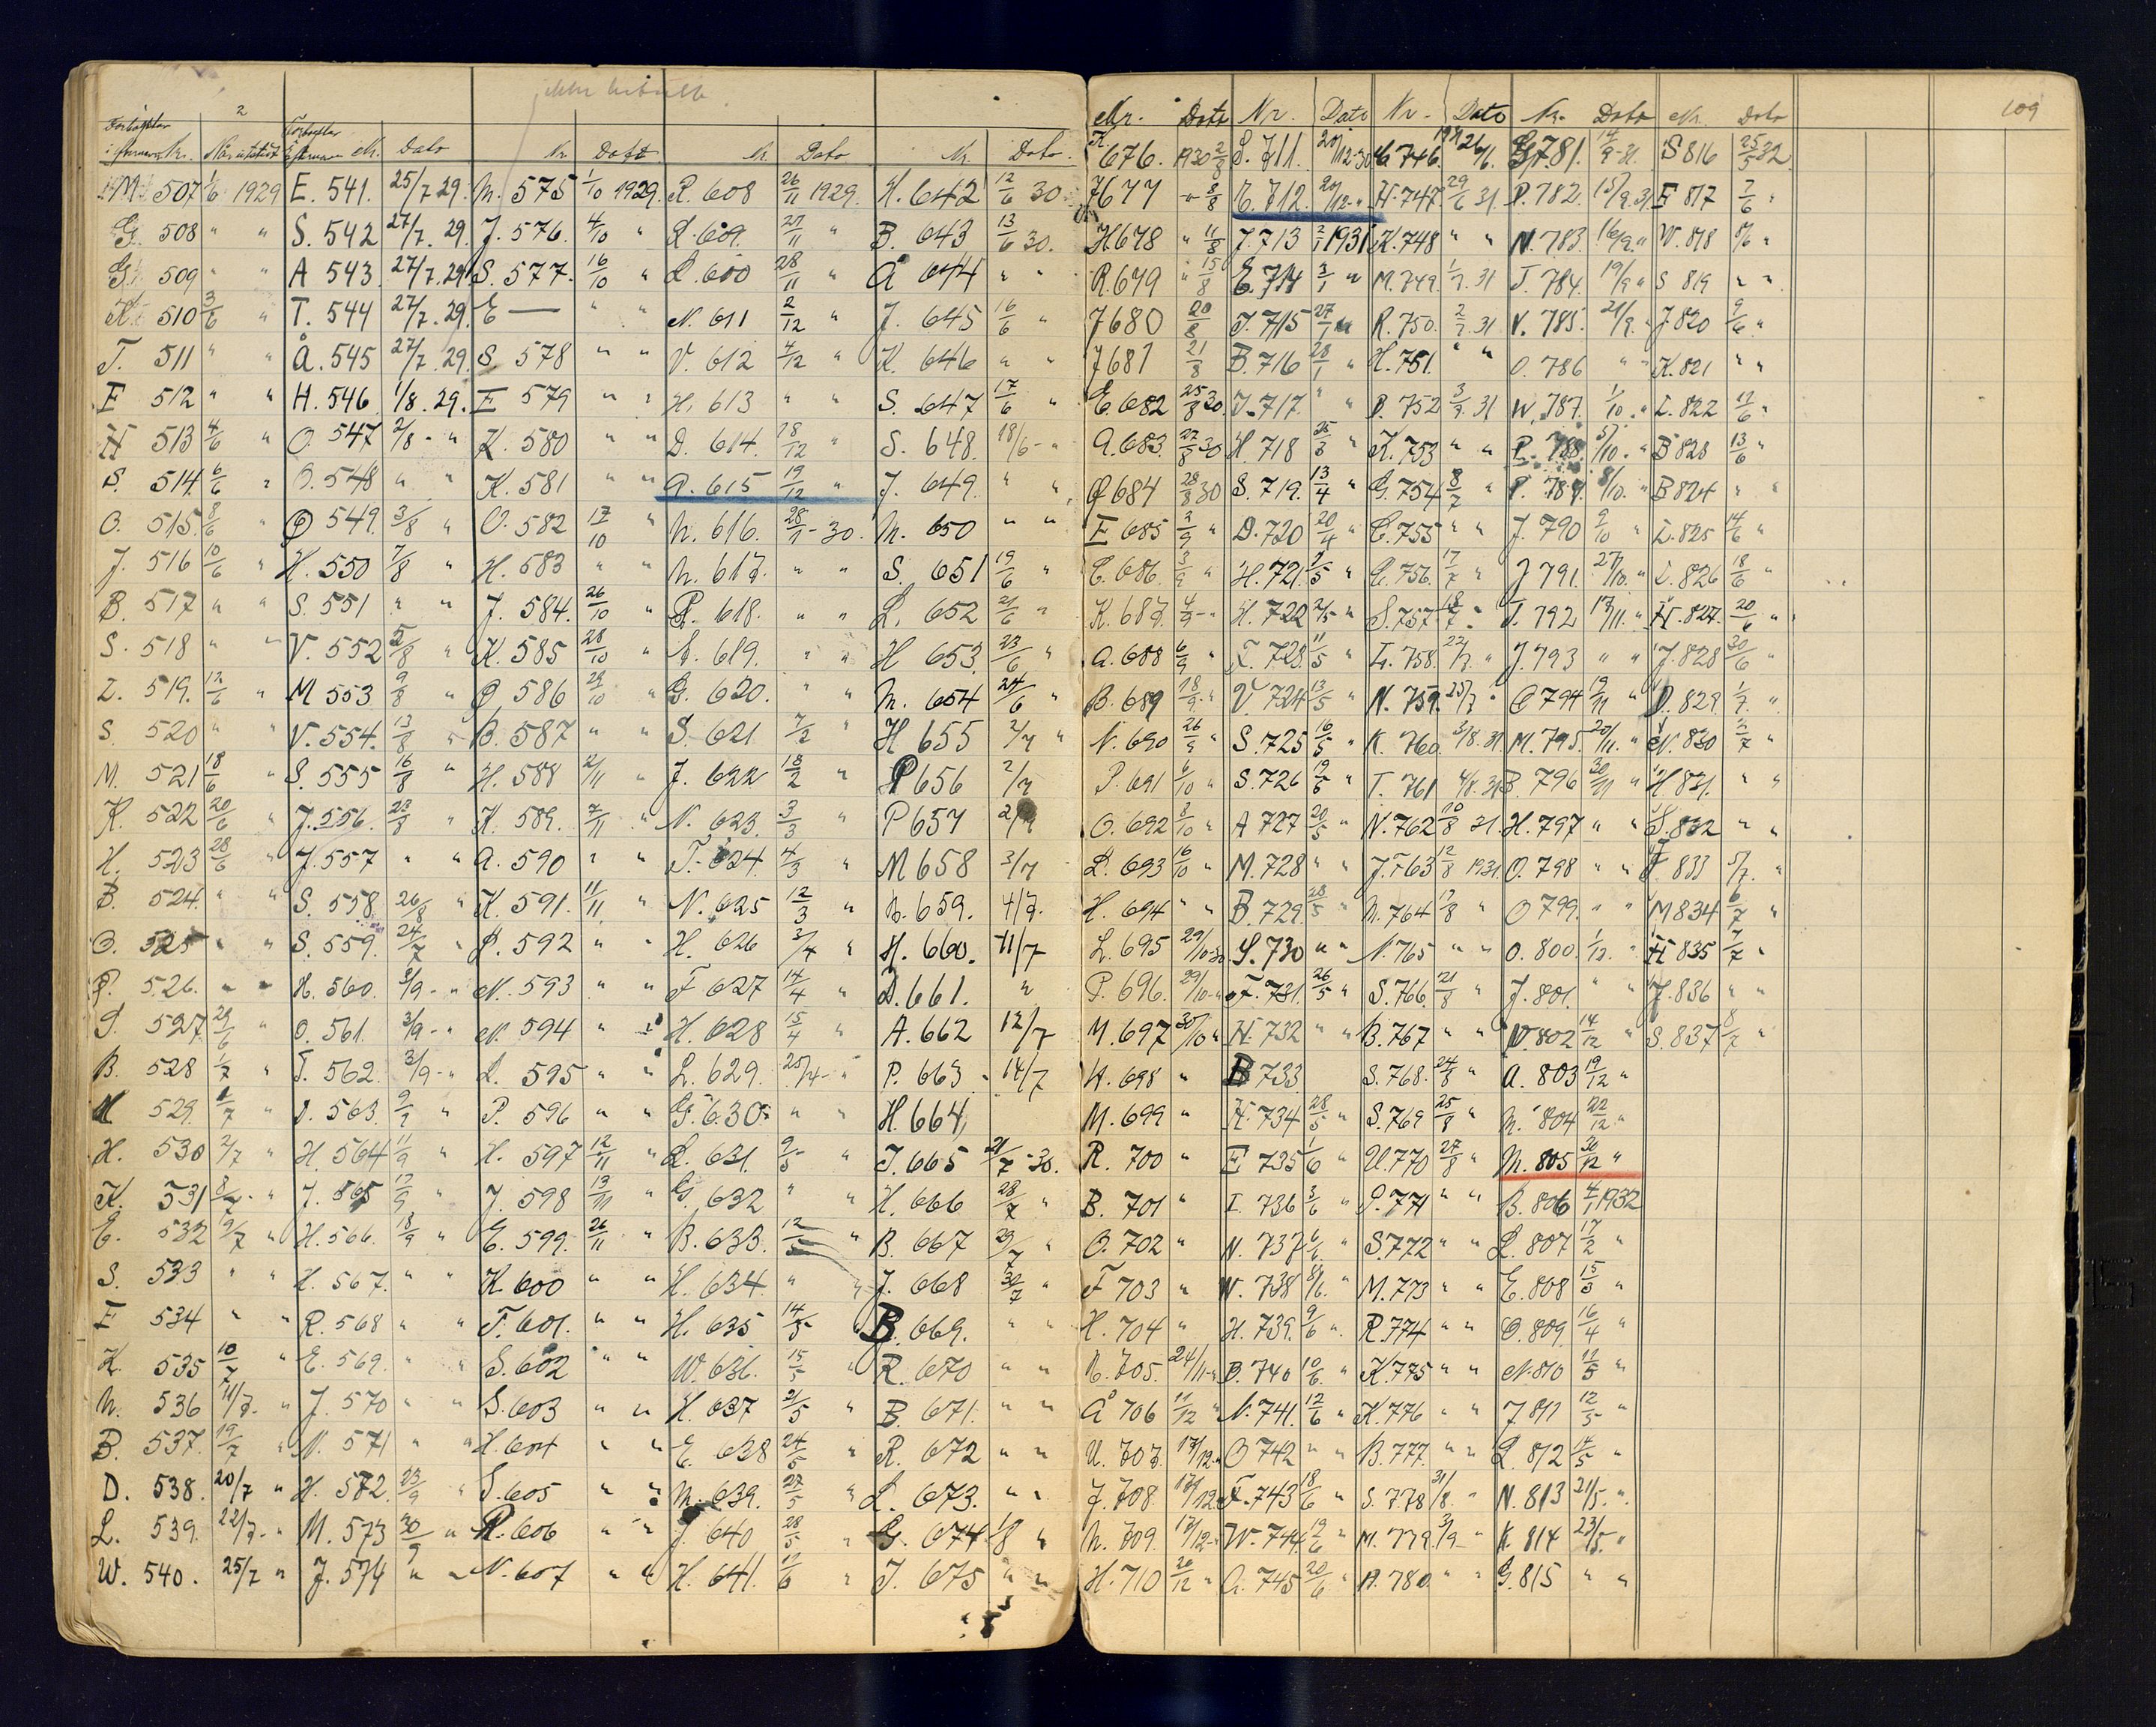 2
Nr. Dato Nr. Dato Nr. Dato Nr. Dato Nr. Dato 109
Nr. Dato Nr. Dato Nr. Dato Nr. Dato
M 507 1/6 1929 E. 541. 25/7 29. N. 575 1/10 1929. R. 608 26/11 1929. H. 642 12/6 30.
G. 508 " " S. 542 27/7. 29. J. 576. 4/10 " R. 609. 27/11 " B. 643 13/6 30.
G. 509 " " A 543. 27/7.29. S. 577. 16/10 " L. 600 28/11 " Å 644 " "
K. 510 3/6 " T. 544 27/7. 29. E — " " N. 611 2/12 " J. 645 16/6 "
T. 511 " " Å. 545 27/7. 29. S. 578 " " V. 612 4/12 " K. 646 " "
E 512 " " H. 546 1/8. 29. E 579 " " H. 613 " " S. 647 17/6 "
H 513 4/6 " O. 547 2/8 - " K. 580 " " D. 614. 18/12 " S. 648. 18/6 - "
S. 514. 6/6 " O. 548 " " K. 581 " " A. 615 19/12 " J. 649. " "
O. 515. 8/6 " Ø 549. 3/8 " O. 582 17/10 " N. 616. 28/1 - 30. M. 650 " "
J. 516 10/6 " H. 550 7/8 " H. 583 " " N. 617. " " S. 651 19/6 "
B. 517 " " S. 551 " " J. 584. 26/10 " R. 618. " " L. 652 21/6 "
S. 518 " " V. 552 5/8 " K. 585 28/10 " S. 619. " " H 653. 23/6 "
L. 519. 12/6 " M 553 9/8 " Ø 586 29/10 " G. 620. " " M. 654 24/6 "
S. 520 " " V. 554. 13/8 " B. 587 " " S. 621 7/2 " H 655 2/7 "
M. 521 18/6 " S. 555 16/8 " H. 588 2/11 " J. 622 18/2 " P 656 2/7
K. 522 20/6 " J. 556. 23/8 " K. 589. 7/11 " N. 623. 3/3 " P 657
H. 523 28/6 " J. 557 " " A. 590 " " T. 624. 4/3 " M 658 3/7
B. 524. " " S. 558. 26/8 " K. 591. 11/11 " N. 625 12/3 " 659. 4/7.
O. 525 " " S. 559. 24/7 " P. 592 " " H. 626 3/4 " H. 660. 11/7
P. 526. " " H. 560. 2/9 - " N. 593 " " F 627 14/4 " D. 661. "
S. 527. 29/6 " O. 561. 3/9 - " N. 594 " " H. 628 15/4 " A. 662 12/7
B. 528 1/7 " T. 562. 3/9 - " L. 595 " " L. 629. 25/4 - " P. 663 - 14/7
529. " 563. " P. 596 " " G. 630 " " H. 664,
H. 530 2/7 " H. 564 11/9 " H. 597 12/11 " L. 631. 9/5 - " J. 665 21/7 - 30.
K. 531 8/7 - " J. 565 17/9 " J. 598 13/11 " G. 632 " " H. 666 28/7 "
E. 532 9/7 " H. 566. 18/9 " E. 599. 26/11 " B. 633. 12/5 " B. 667 29/7 "
S. 533 " " H. 567. " " K. 600 " " H. 634. " " J. 668 30/7 "
E 534 " " R. 568 " " T. 601. " " H. 635 14/5 " B. 669. " "
K. 535 10/7 " E. 569. " " S. 602 " " W. 636. 15/5 " R. 670 " "
N. 536 11/7. " J. 570 " " S. 603 " " H. 637 21/5 " B. 671. " "
B. 537. 19/7 " N. 571 " " H. 604 " " E. 638 24/5 " R. 672 " "
D. 538. 20/7 " H. 572. 23/9 " S. 605 " " M. 639. 27/5 " L. 673. " "
L. 539. 22/7. " M. 573 30/9 " R. 606 " " J. 640 28/5 " G. 674 1/8 "
W. 540. 25/7 " J. 574 " " N. 607 " " H. 641. 11/6 " J. 675 " "
K. 676. 1930 S. 711. 20/12-30 746. 26/6. G. 781. 14/9-31. S 816 25/5 32
J 677 " 8/8 R. 712. 20/12 " H. 747. 29/6 31. P. 782. 15/9.31 E 817 7/6 "
H 678 " 11/8 J. 713 2/1 1931 K. 748 " " N. 783. 16/9. " W. 818 8/6 "
R. 679 " 15/8 E. 714 3/1 " M. 749. 1/7. 31 J. 784. 19/9 " S 819 " "
J 680 20/8 J. 715 27/1 " R. 750. 2/7. 31 V. 785. 21/9. " J 820 9/6 "
J 681 21/8 B. 716 28/1 " H. 751. " " O. 786 " " K. 821 " "
E. 682 25/8 30. J. 717. " " P. 752 3/7. 31 W. 787. 1/10. " L. 822 11/6 "
A. 683. 27/8 30 H. 718 25/3 " K. 753 " " P. 788. 5/10. " B 823 13/6 "
Ø 684 28/8 30 S. 719. 13/4 " G. 754 8/7 " P. 789. 8/10. " B 824 " "
E 685 2/9 " D. 720 20/4 " C. 755 " " J. 790 9/10 " L. 825 14/6 "
E. 686. 3/9 " H. 721. 2/5 " E. 756. 17/7 " J 791. 27/10. " L. 826 18/6 "
K. 687. 4/9 - " H. 722 2/5 " S. 757. 18/7 " J. 792 17/11. " H. 827. 20/6 "
A. 688 6/9 " 723. 11/5 " L. 758. 22/7. " J. 793 " " J. 828 30/6 "
B. 689 18/9 - " V. 724 13/5 " N. 759. 25/7 " O 794 19/11 " D. 829. 1/7. "
N. 690 26/9 " S. 725 16/5 " K. 760. 3/8.31. M. 795. 25/11. " N. 830 2/7 "
P. 691 6/10 " S. 726 19/5 " T. 761 4/8.31 B. 796 30/11 " H. 831. " "
O. 692 8/10 " A 727 20/5 " N. 762 10/8 31. H. 797 " " S. 832 " "
L. 693 16/10 " M. 728 " " J. 763 12/8 1931. O. 798 " " 833 5/7. "
H. 694 " " B. 729. 28/5 " N. 764 17/8 " O 799. " " M 834 6/7 "
L. 695 29/10-30 S. 730 " " N. 765 " " O. 800. 1/12. " H 835 7/7 "
P. 696. 29/10 - " F. 731. 26/5 " S. 766. 21/8 " J. 801. " " J. 836 " "
M. 697 30/10 " H. 732 " " B. 767 " " N. 802 14/12 " S. 837 8/7 "
H. 698 " B 733 S. 768. 24/8 " A. 803 19/12 "
M. 699 " H. 734 28/5 " S. 769 25/8 " M. 804 22/12 "
R. 700 " E 735 1/6 " U. 770 27/8 " M. 805 30/12 "
B. 701 " I. 736 3/6 " P. 771 " " B. 806 4/1 1932
O. 702 " N. 737 6/6 " S. 772 " " L. 807 17/2 "
F 703 " W. 738 8/6. " M. 773 " " E. 808 15/3 "
H. 704 " H. 739. 9/6 " R. 774 " " O. 809. 16/4 "
R. 705. 24/11 - " B. 740 10/6. " K. 775 " " N. 810 11/5 "
Å 706 11/12 " N. 741. 12/6 " K. 776 " " J 811 12/5 "
U. 707. 17/12 - " O 742 " " B. 777. " " L. 812 14/5 "
J. 708. 17/12 F. 743 18/6 " S. 778 31/8. " N. 813 21/5. "
N. 709. 17/12 - W. 744. 19/6 " M. 779. 3/9 - " K. 814 23/5. "
H. 710 20/12 " A. 745 20/6 " A. 780. " " G. 815 " "